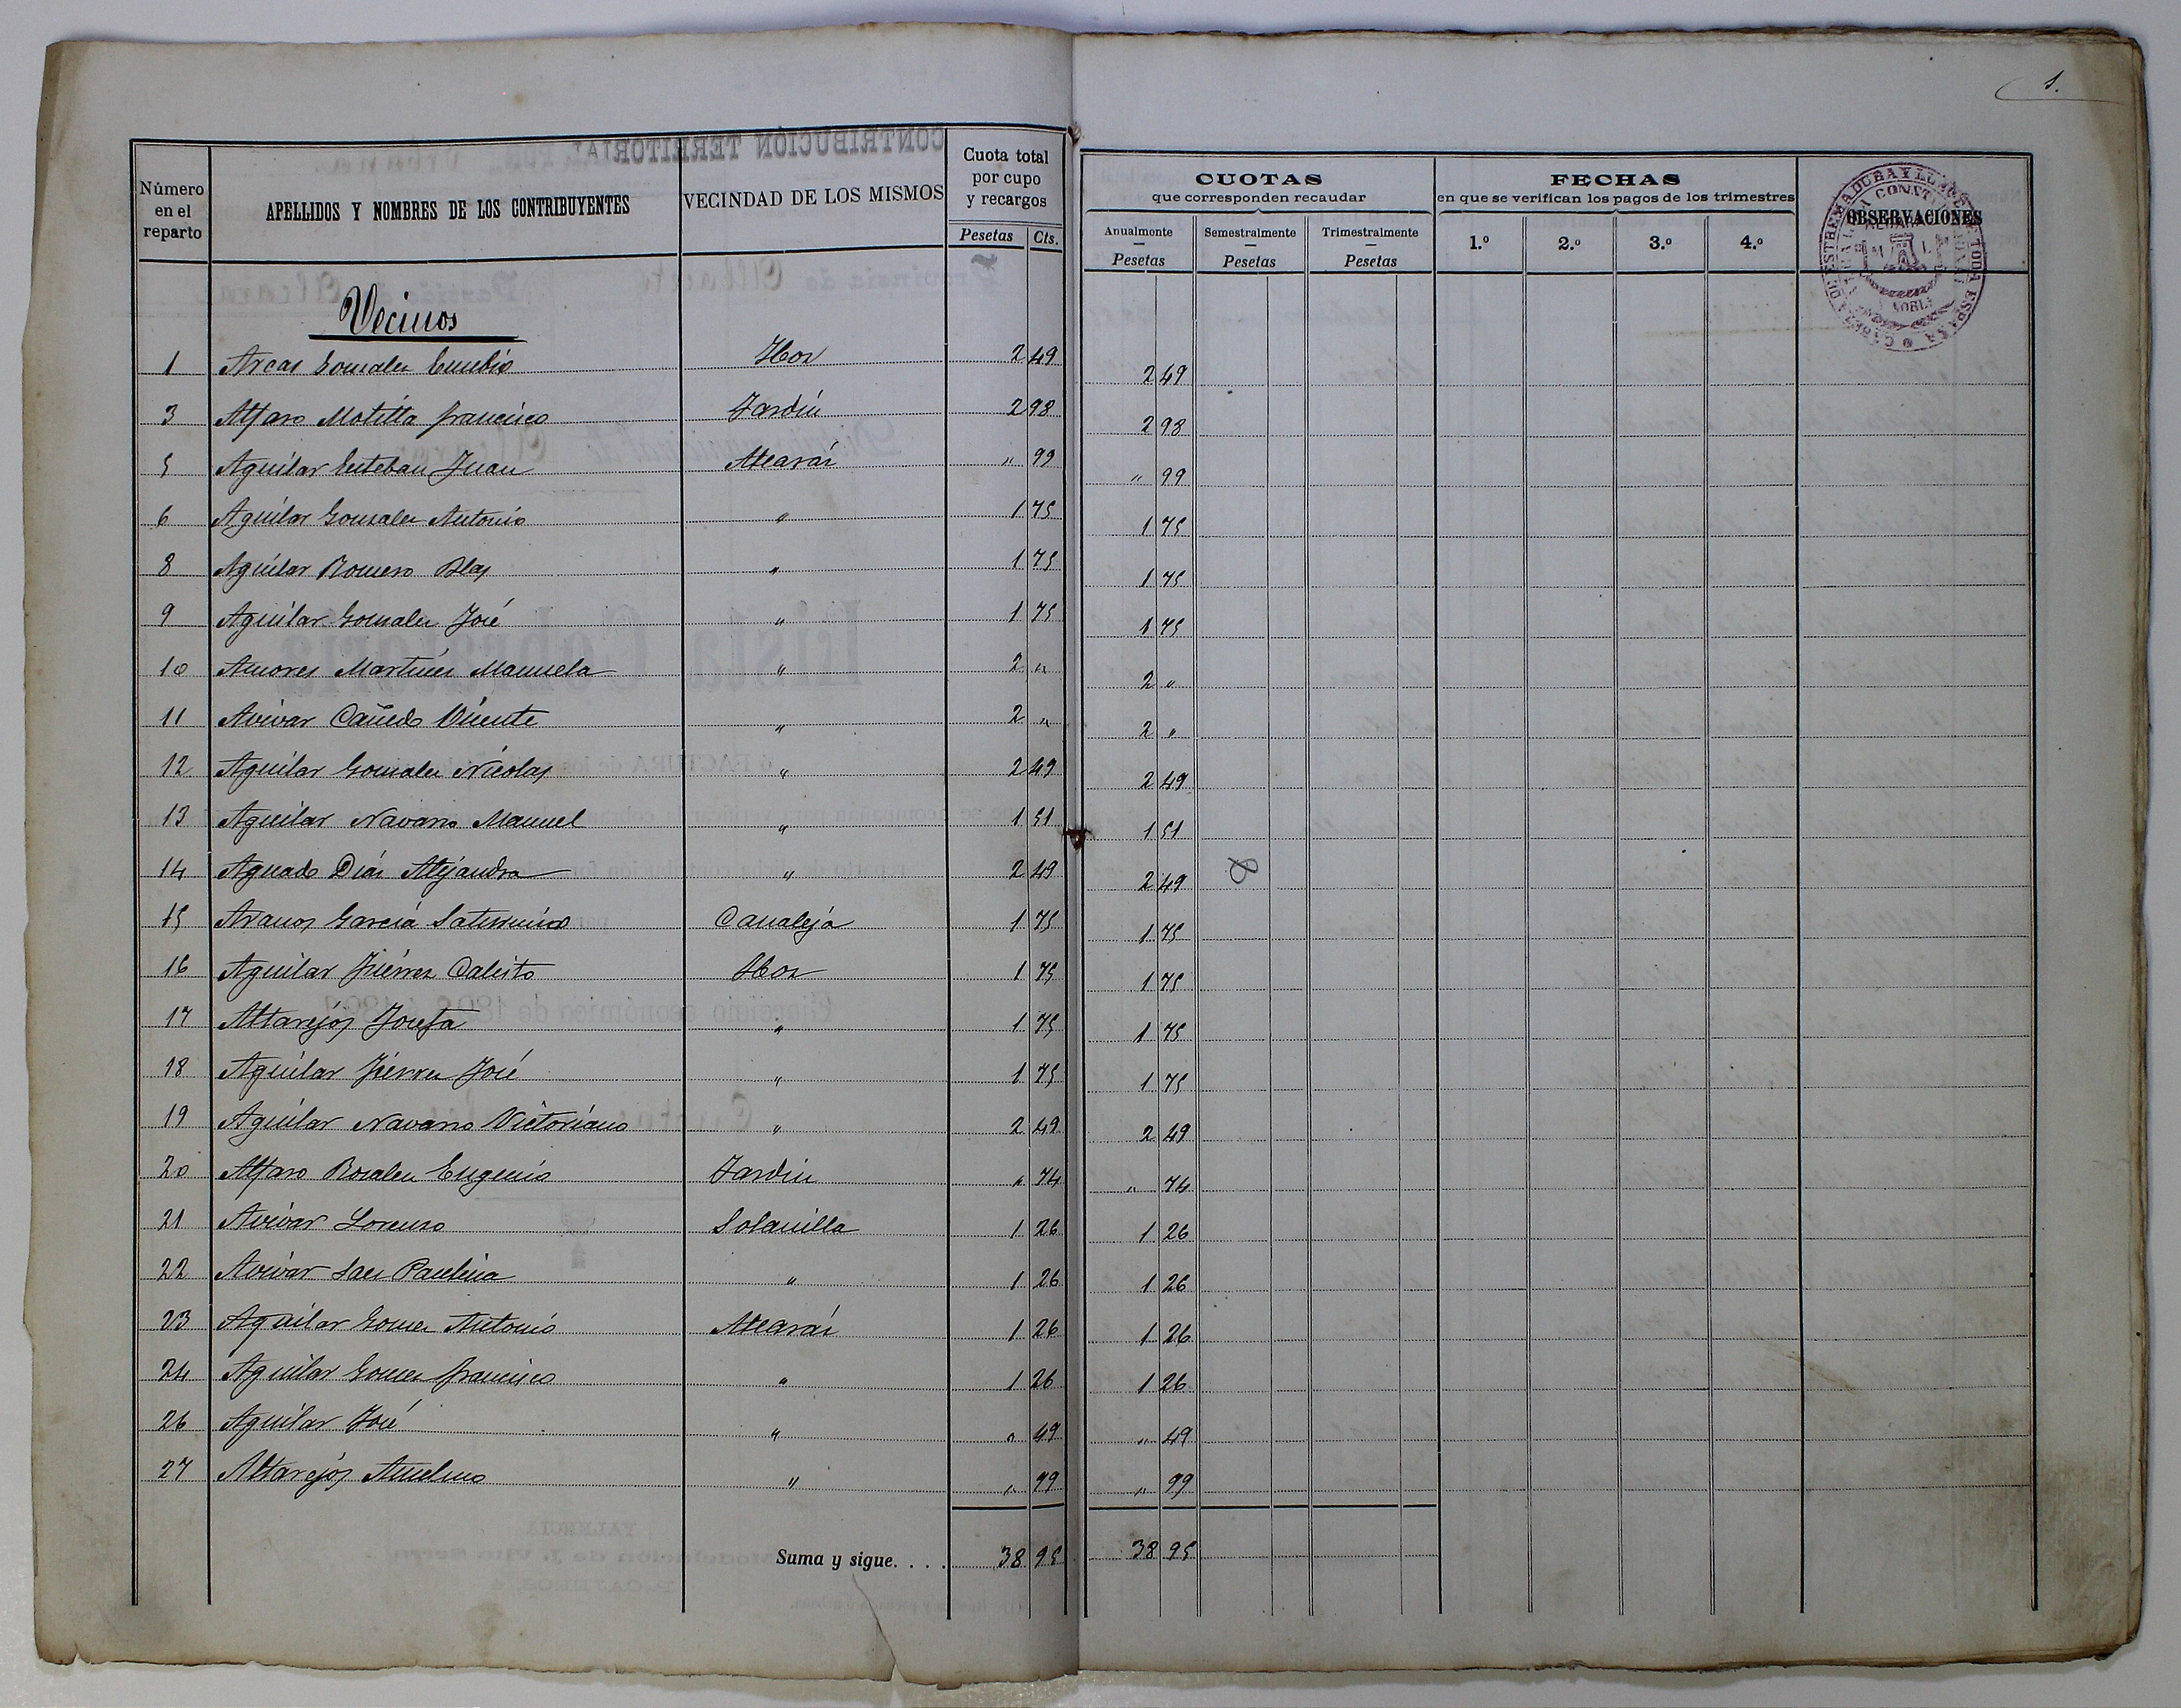 1.
Número en el reparto
APELLIDOS Y NOMBRES DE LOS CONTRIBUYENTES
VECINDAD DE LOS MISMOS
Cuota total por cupo y recargos
Pesetas Cts.
CUOTAS
que corresponden recaudar
Anualmente — Pesetas
Semestralmente — Pesetas
Trimestralmente — Pesetas
FECHAS
en que se verifican los pagos de los trimestres
1.º 2.º 3.º 4.º
OBSERVACIONES
Vecinos
1 Arcas Gonzalez Eusebio Hoz 2 49 2 49
3 Alfaro Motilla Francisco Jardin 2 98 2 98
5 Aguilar Esteban Juan Alcaráz " 99 " 99
6 Aguilar Gonzalez Antonio " 1 75 1 75
8 Aguilar Romero Blas " 1 75 1 75
9 Aguilar Gonzalez José " 1 75 1 75
10 Amores Martinez Manuela " 2 " 2 "
11 Avivar Cañedo Vicente " 2 " 2 "
12 Aguilar Gonzalez Nicolas " 2 49 2 49
13 Aguilar Navarro Manuel " 1 51 1 51
14 Aguado Diáz Alejandra " 2 49 2 49
15 García Saturnino Canaleja 1 75 1 75
16 Aguilar Calisto Hoz 1 75 1 75
17 Altarejos Josefa " 1 75 1 75
18 Aguilar José " 1 75 1 75
19 Aguilar Navarro Victoriano " 2 49 2 49
20 Alfaro Rosalen Eugenio Jardin " 74 " 74
21 Avivar Lorenzo Solanilla 1 26 1 26
22 Avivar Saez Paulina " 1 26 1 26
23 Aguilar Gomez Antonio Alcaráz 1 26 1 26
24 Aguilar Gomez Francisco " 1 26 1 26
26 Aguilar José " " 49 " 49
27 Altarejos Anselmo " " 99 " 99
Suma y sigue. . . . 38 95 38 95